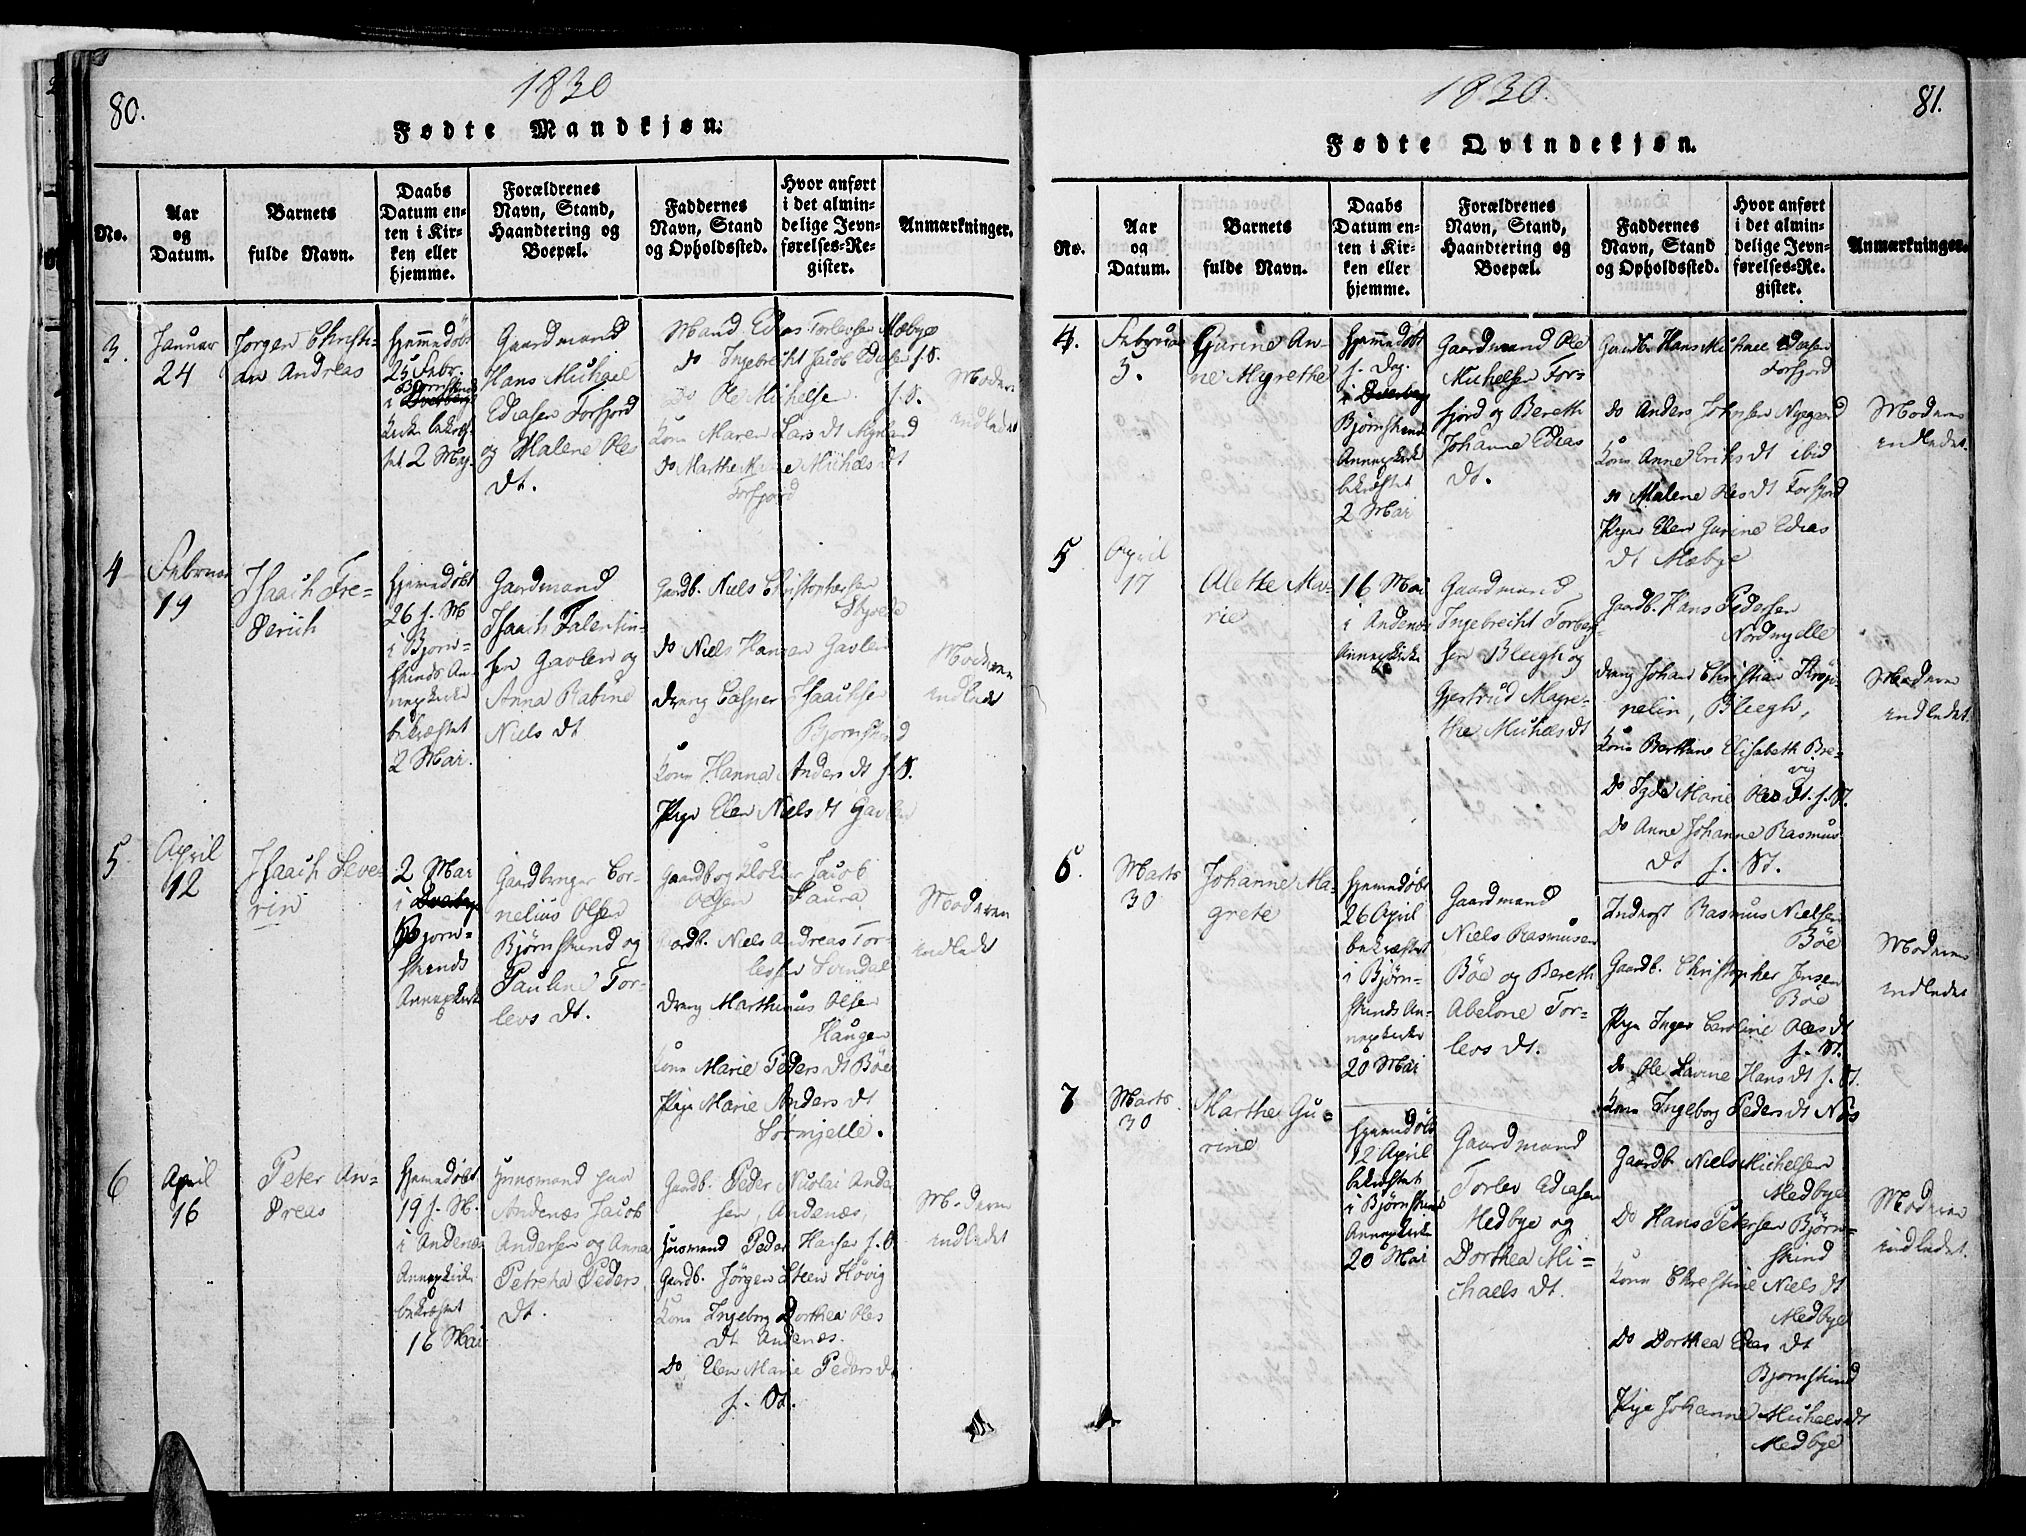 80.
1830
Fødte Mandkjøn.
No.
Aar
og
Datum.
Barnets
fulde Navn.
Daabs
Datum en-
ten i Kir-
ken eller
hjemme.
Forældrenes
Navn, Stand,
Haandtering og
Boepæl.
Faddernes
Navn, Stand
og Opholdssted.
Hvor anført
i det almin-
delige Jevn-
førelses-Re-
gister.
Anmærkninger.
3.
Januar
24
Jørgen Christi-
an Andreas
Hjemmedøbt
25 Febr.
Bjørnskind
i
Kirke bekræf-
tet 2 Maj
Gaardmand
Hans Michael
Ediasen Forfjord
og Malene Oles
dt.
Mand Edias Torlevsen Mæbye
do Ingebrecht Jacob Edissen f. S.
Do Ole Michelse f. S.
Kone Maren Lars dt Myrland
do Marthe Michels dt
Forfjord
Moderen
indledet
4
Februar
19
Isaach Fre-
derich
Hjemmedøbt
26 f. M
i Bjørn-
skinds An-
nexkirke
bekræftet
2 Mai.
Gaardmand
Isaach Falentin-
sen Gavlen og
Anna Rabine
Niels dt
Gaardb. Niels Christophersen
Skjvede
do Niels Hansen Gavlen
Dreng Casper Isaachsen
Bjørnskind
Kone Hanna Anders dt f. S.
Pige Elen Niels dt Gavlen
Moderen
indledt
5
April
12
Isaach Seve-
rin
2 Mai
i
Bjørn-
skinds
Annexkirke
Gaardbruger Cor-
nelius Olsen
Bjørnskind og
Pauline Tor-
levs dt.
Gaardb og Kloker Jacob
Olsen Saura
Gaardb. Niels Andreas Tor-
levsen Svindal
Dreng Marthinus Olsen
Haugen
Kone Marie Peders dt Böe
Pige Marie Anders dt
Sørmjelle.
Moderen
indledt
6
April
16
Peter An-
dreas
Hjemmedøbt
19 f. M.
i Andenæs
Annexkirke
bekræftet
16 Mai
Huusmand paa
Andenæs Jacob
Andersen og Anna
Petreha Peders
dt.
Gaardb. Peder Nicolai Ander
sen, Andenæs,
Huusmand Peder Hansen f. S.
Gaardb. Jørgen Steen Høvig
Kone Ingeborg Dorthea Oles
dt Andenæs.
Do Elen Marie Peders dt
f. St.
Moderen
indledet
1830.
81.
Fødte Qvindekjøn.
No.
Aar
og
Datum.
Barnets
fulde Navn.
Daabs
Datum en-
ten i Kir-
ken eller
hjemme.
Forældrenes
Navn, Stand,
Haandtering og
Boepæl.
Faddernes
Navn, Stand
og Opholdssted.
Hvor anført
i det almin-
delige Jevn-
førelses-Re.
gister.
Anmærkninger.
4.
Februar
3.
Gurine An-
ne Mgrethe
Hjemmedøbt
f. Dag.
i
Bjørnskinds
Annexkirke
bekræftet
2 Mai
Gaardmand Ole
Michelsen For-
fjord og Bereth
Johanne Edias
dt.
Gaardb. Hans Michael Ediasen
Forfjord
do Anders Johnsen Nygaard
Kone Anne Eriks dt ibid
do Malene Oles dt Forfjord
Pige Elen Gurine Edias
dt Mæbye
Moderen
indledet.
5
April
17
Alethe Ma-
rie
16 Mai
i Andenæs
Annexkirke
Gaardmand
Ingebrecht Torberg-
sen Bleegh og
Gjertrud Magre-
the Michels dt
Gaardb. Hans Pedersen
Nordmjelle
Dreng Johan Christian
nelin, Bleegh,
Kone Berthine Elisabeth Bre-
vig
Do Marie Oles dt. f. St.
Do Anne Johanne Rasmus
dt f. St.
Moderen
indledet.
6.
Marts
30
Johanne Ma-
grete
Hjemmedøbt
26 April
bekræftet
i Bjørn-
skinds An-
nexkirke
20 Mai
Gaardmand
Niels Rasmusen
Böe og Bereth
Abelone Tor-
levs dt.
Inderst Rasmus Nielsen
Böe
Gaardb. Christopher Jensen
Böe
Pige Inger Caroline Oles dt
f. St.
do Ole Lavine Hans dt f. St.
Kone Ingeborg Peders dt Nös
Moderen
indledet
7
Marts
30
Marthe Gu-
rine
Hjemmedøbt
12 April
bekræftet
i Bjørnskinds
Annexkirke
20 Mai
Gaardmand
Torlev Ediasen
Medbye og
Dorthea Mi-
chaels dt.
Gaardb. Niels Michelsen
Medbye
Do Hans Petersen Bjørn-
skind
Kone Christine Niels dt
Medbye
Do Dorthea Edias dt
Bjørnskind
Pige Johanne Michels dt
Medbye
Moderen
indledet.